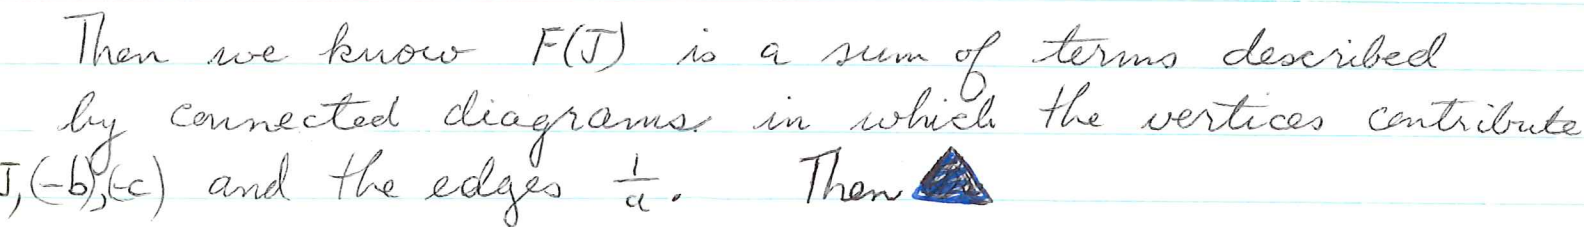 Then we know F(J) is a sum of terms described
by connected diagrams in which the vertices contribute
J, (-b), (-c) and the edges 1/a. Then